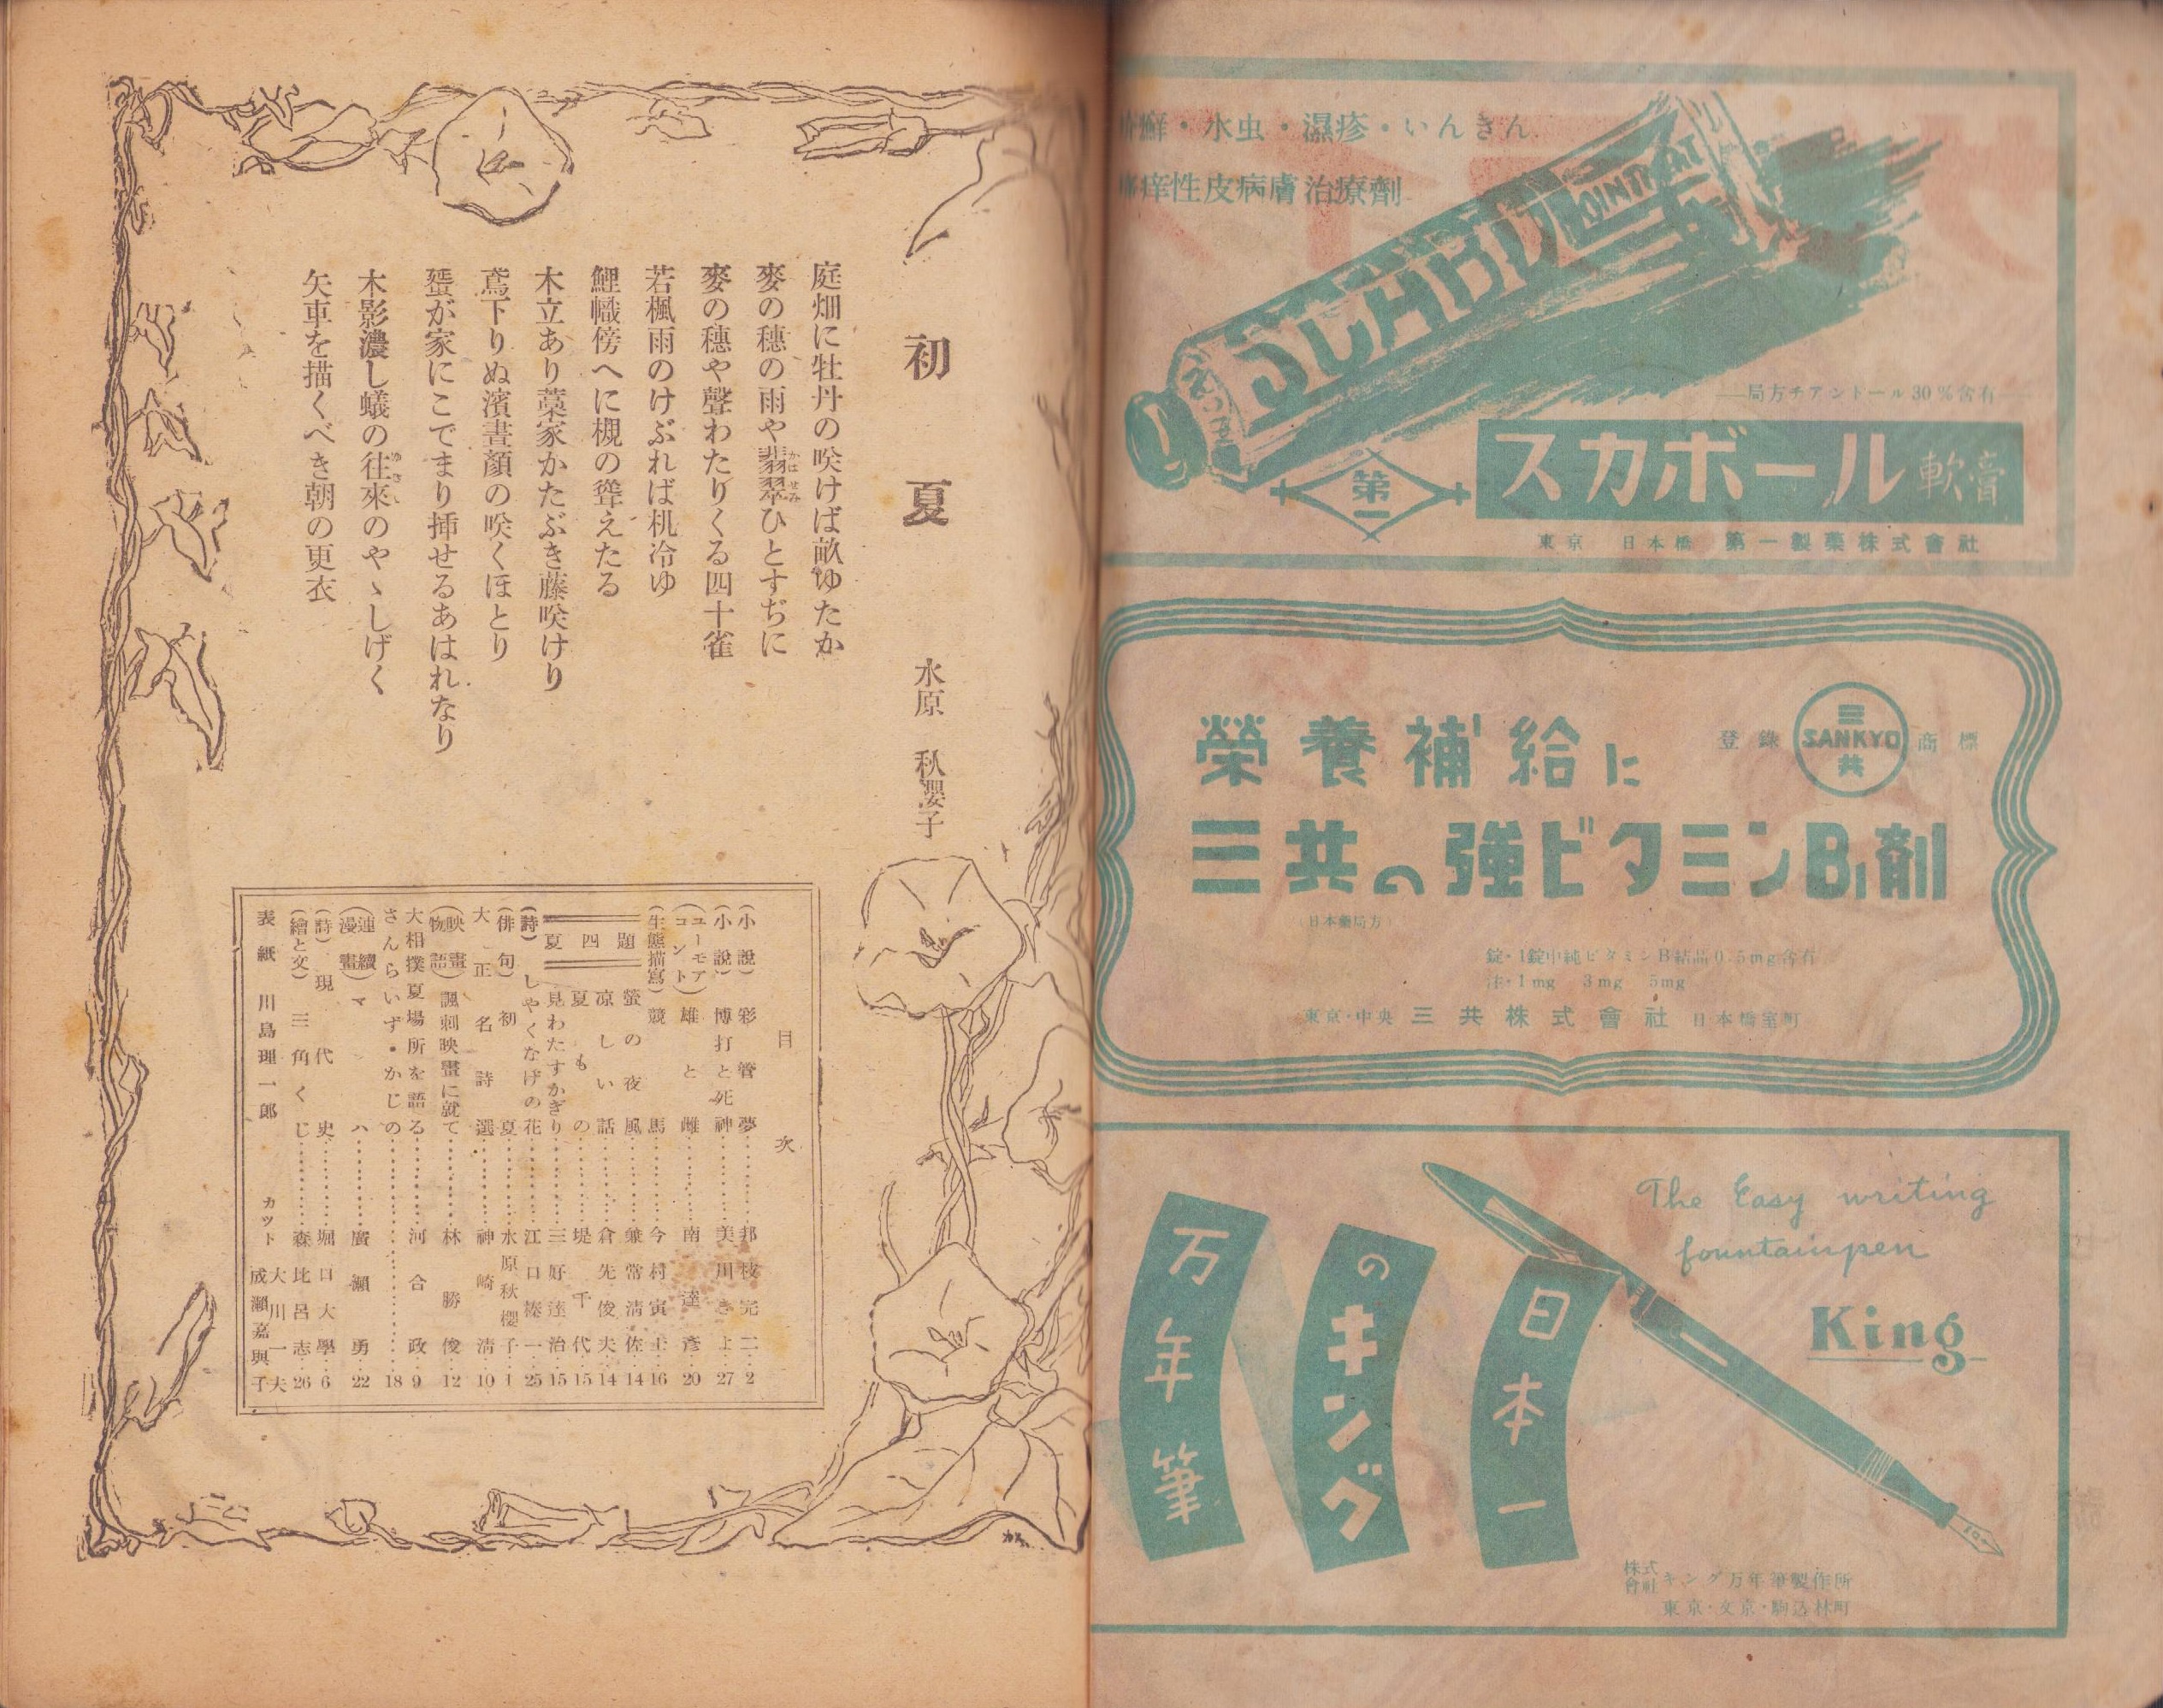 疥癬・水虫・濕疹・いんきん
瘙痒性皮病膚治療劑
SCABOL
OINTMENT
局方チアントール30%含有
第一
スカボール軟膏
東京 日本橋 第一製薬株式會社
榮養補給に
登錄 三 SANKYO 共 商標
三共の強ビタミンB₁剤
(日本藥局方)
錠・1錠中純ビタミンB結晶0.5mg含有
注・1mg 3mg 5mg
東京・中央 三共株式會社 日本橋室町
The Easy writing
fountainpen
King
日本一
のキング
万年筆
株式會社キング万年筆製作所
東京・文京・駒込林町
初夏
水原 秋櫻子
庭畑に牡丹の咲けば畝ゆたか
麥の穗の雨や翡翠ひとすぢに
かはせみ
麥の穗や聲わたりくる四十雀
若楓雨のけぶれば机冷ゆ
鯉幟傍へに槻の聳えたる
木立あり藁家かたぶき藤咲けり
鳶下りぬ濱晝顏の咲くほとり
蜑が家にこでまり揷せるあはれなり
木影濃し蟻の往來のやゝしげく
ゆきゝ
矢車を描くべき朝の更衣
目次
(小說) 彩管夢………邦枝完二…2
(小說) 博打と死神………美川きよ…27
(ユーモアコント) 雄と雌………南達彥…20
(生態描寫) 競馬………今村寅士…16
夏四題
螢の夜風………兼常淸佐…14
凉しい話………倉先俊夫…14
夏もの………堤千代…15
見わたすかぎり………三好達治…15
(詩) しやくなげの花………江口榛一…25
(俳句) 初夏………水原秋櫻子…1
大正名詩選………神崎淸…10
(映畫物語) 諷刺映畫に就て………林勝俊…12
大相撲夏場所を語る………河合政…9
さんらいず・かじの………18
(連續漫畫) マハ………廣瀨勇…22
(詩) 現代史………堀口大學…6
(繪と文) 三角くじ………森比呂志…26
表紙 川島理一郎
カット 大川一夫
成瀨嘉與子